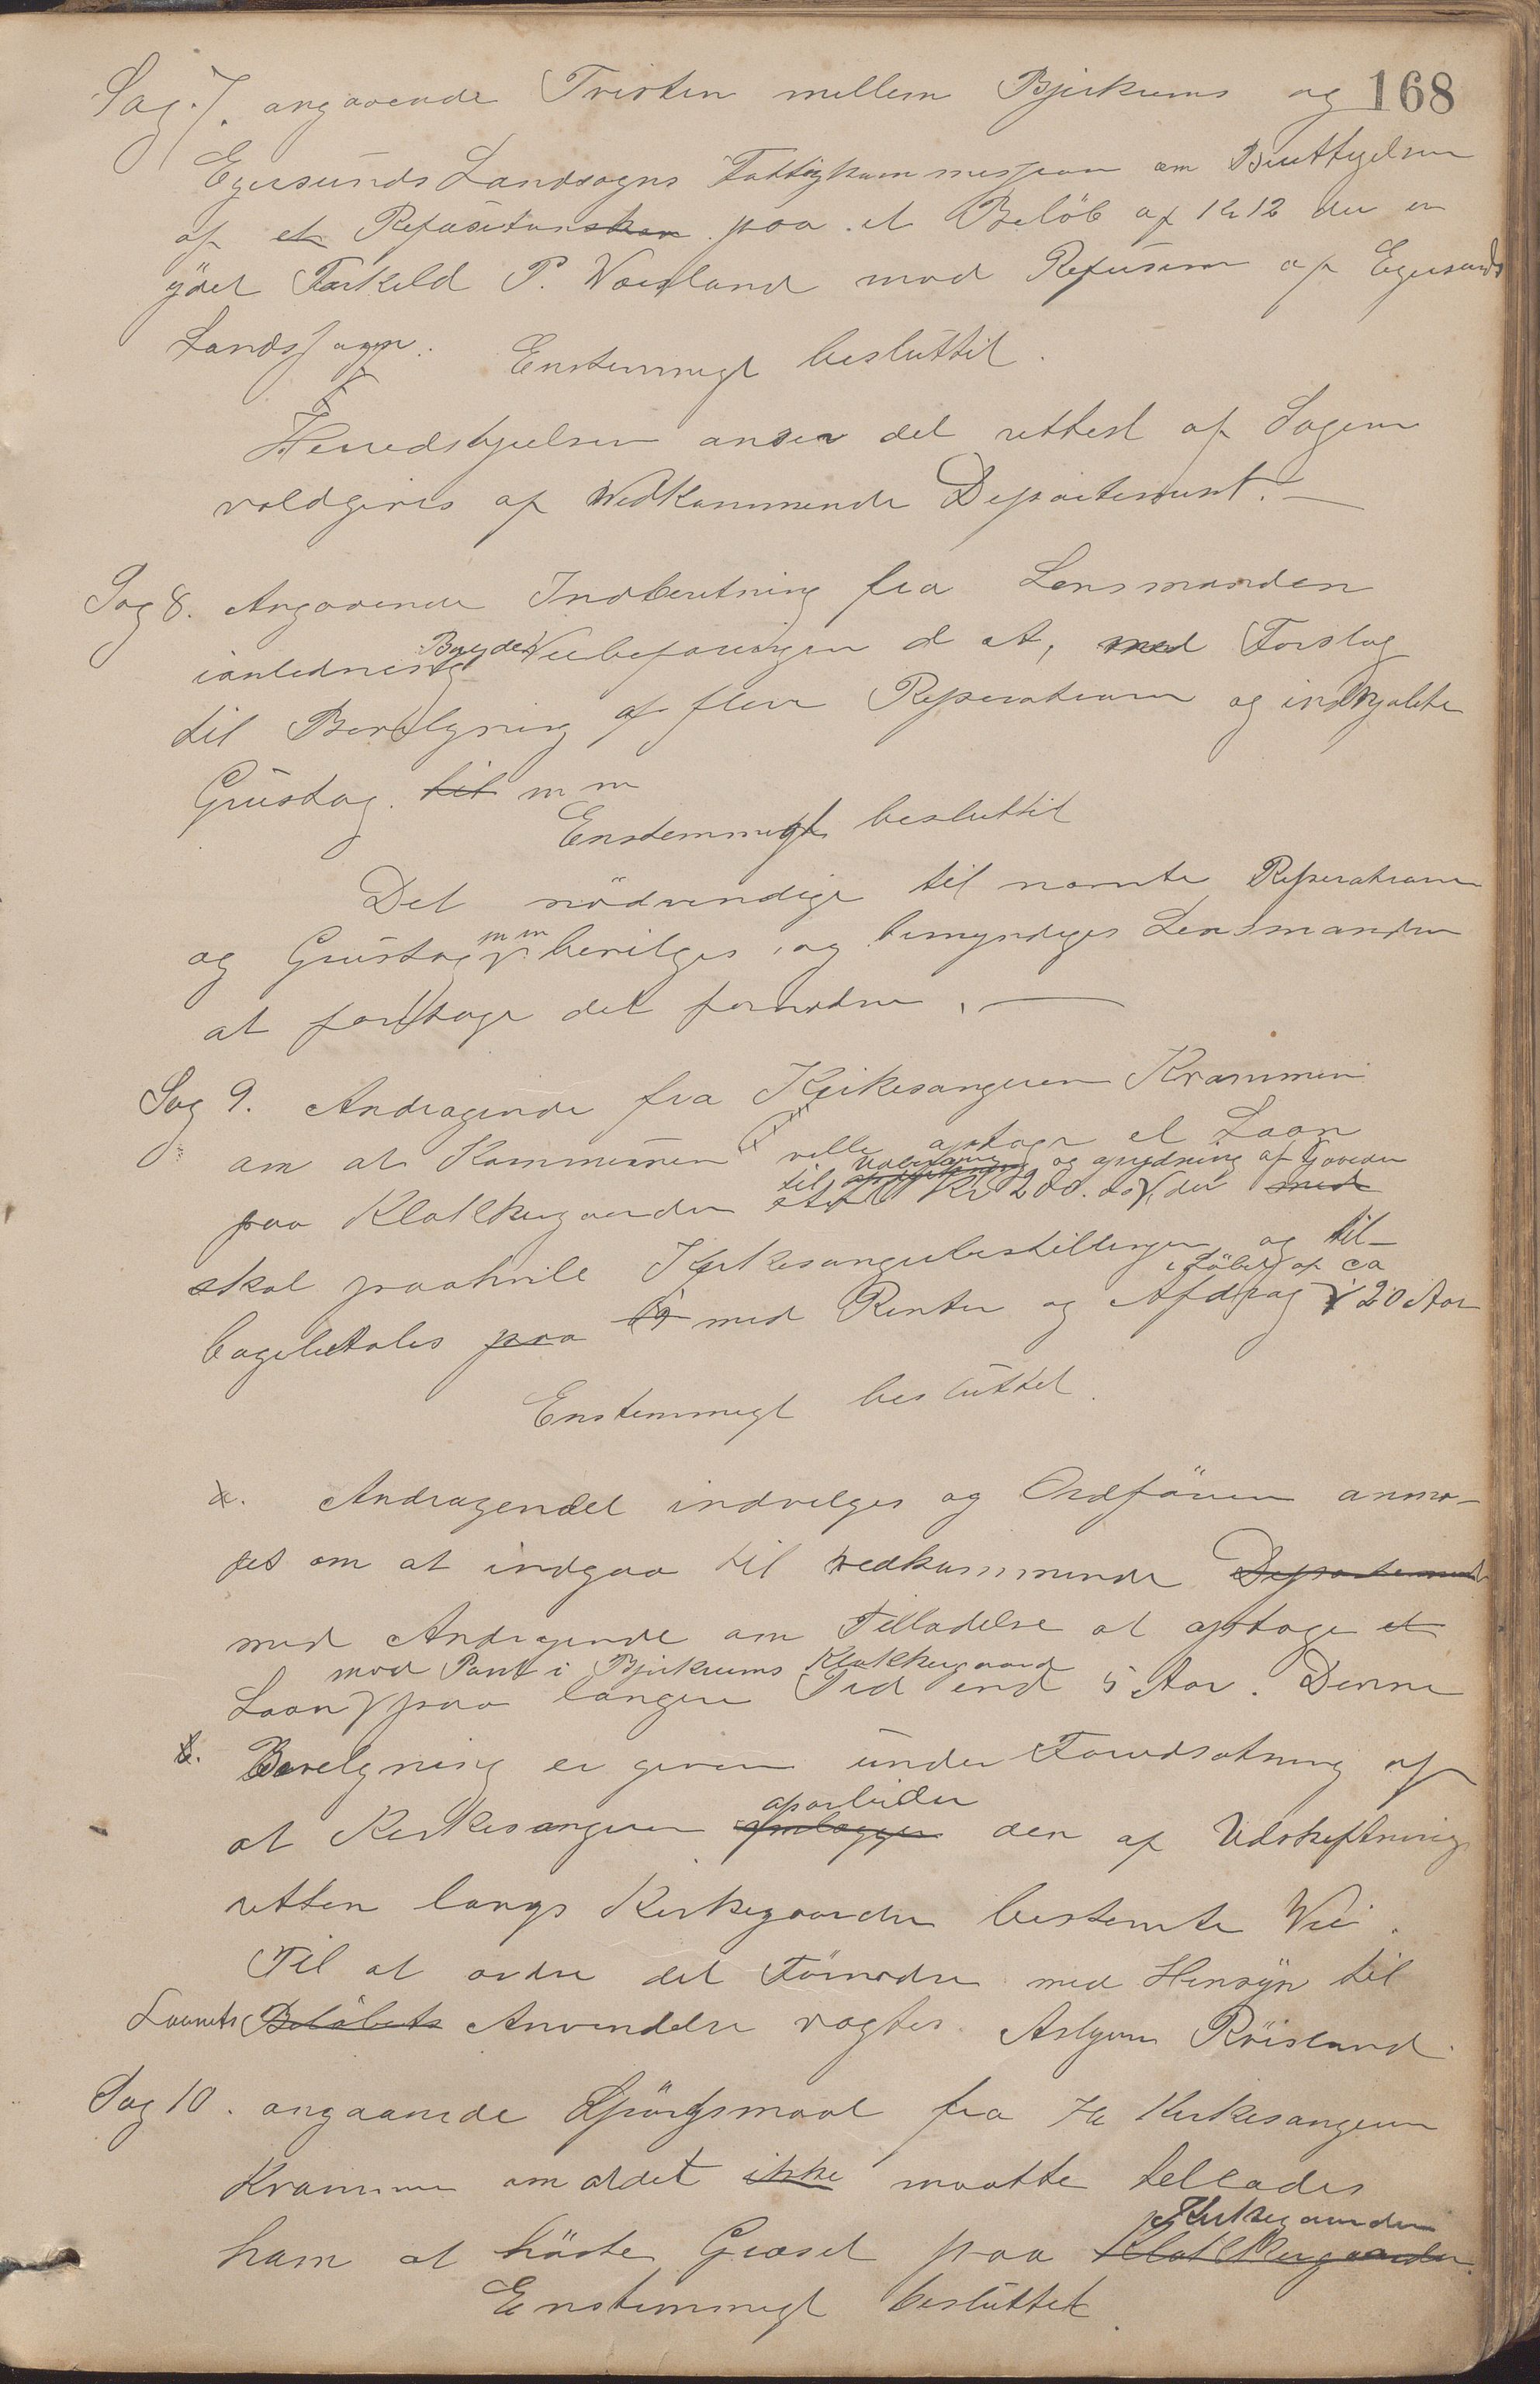 168
Sag 7. angaaende Tvisten mellem Bjerkrems og
Egersunds Landsogns Fattigkommission om Benttigelsen
af et Refusitionskrav paa et Beløb af Kr 12 der er
ydet Torkild P. Vasland mod Refusion af Egersunds
Landssogn.
Enstemmigt besluttet.
Herredstyrelsen anser det rettest at Sagen
voldgives af Vedkommende Departement. —
Sag 8. Angaaende Indberetning fra Lensmanden
ianledning Bygde Veibefaringen d A, med Forslag
til Bevilgning af flere Reperationer og indkjøbte
Grustag til m m
Enstemmigt besluttet
Det nödvendige til nævnte Reperationer
og Grustag m m bevilges, og bemyndiges Lensmanden
at foretage det fornødne. —
Sag 9. Andragende fra Kirkesangeren Krammer
om at Kommunen ville optage et Laan
til Udbedring og oprydning af Gaarden
paa Klokkergaarden stort Kr 200.00, der med
skal paahvile Kirkesangerbestillingen og til-
i Löbet af ca
bagebetales paa med Renter og Afdrag i 20 Aar
Enstemmigt besluttet.
a. Andragendet indvilges og Ordføreren anmo-
des om at indgaa til vedkommende Departement
med Andragende om Tilladelse at optage et
mod Pant i Bjerkrems Klokkergaard
Laan paa længere Tid end 5 Aar. Denne
b. Bevilgning er given under Forudsætning af
oparbeider
at Kirkesangeren omlægger den af Udskiftnings
retten langs Kirkegaarden bestemte Vei.
Til at ordne det Fornødne med Hensyn til
Laanets Beløbets Anvendelse vælges Asbjørn Røisland.
Sag 10. angaaende Spörgsmaal fra Hr Kirkesangeren
Krammer om at det ikke maatte tillades
Kirkegaarden
ham at höste Græset paa Klokkergaarden.
Enstemmigt besluttet